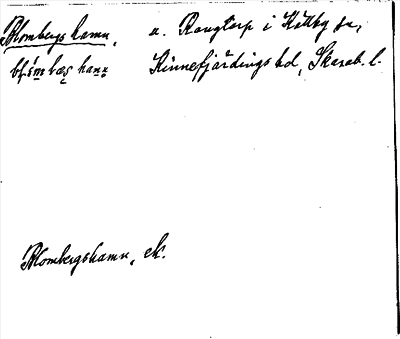 Blombergs hamn, u. Rangtorp i Kestby sn,
Kinnefjärdings hd, Skarab. l.
Blombergshamn, ek.